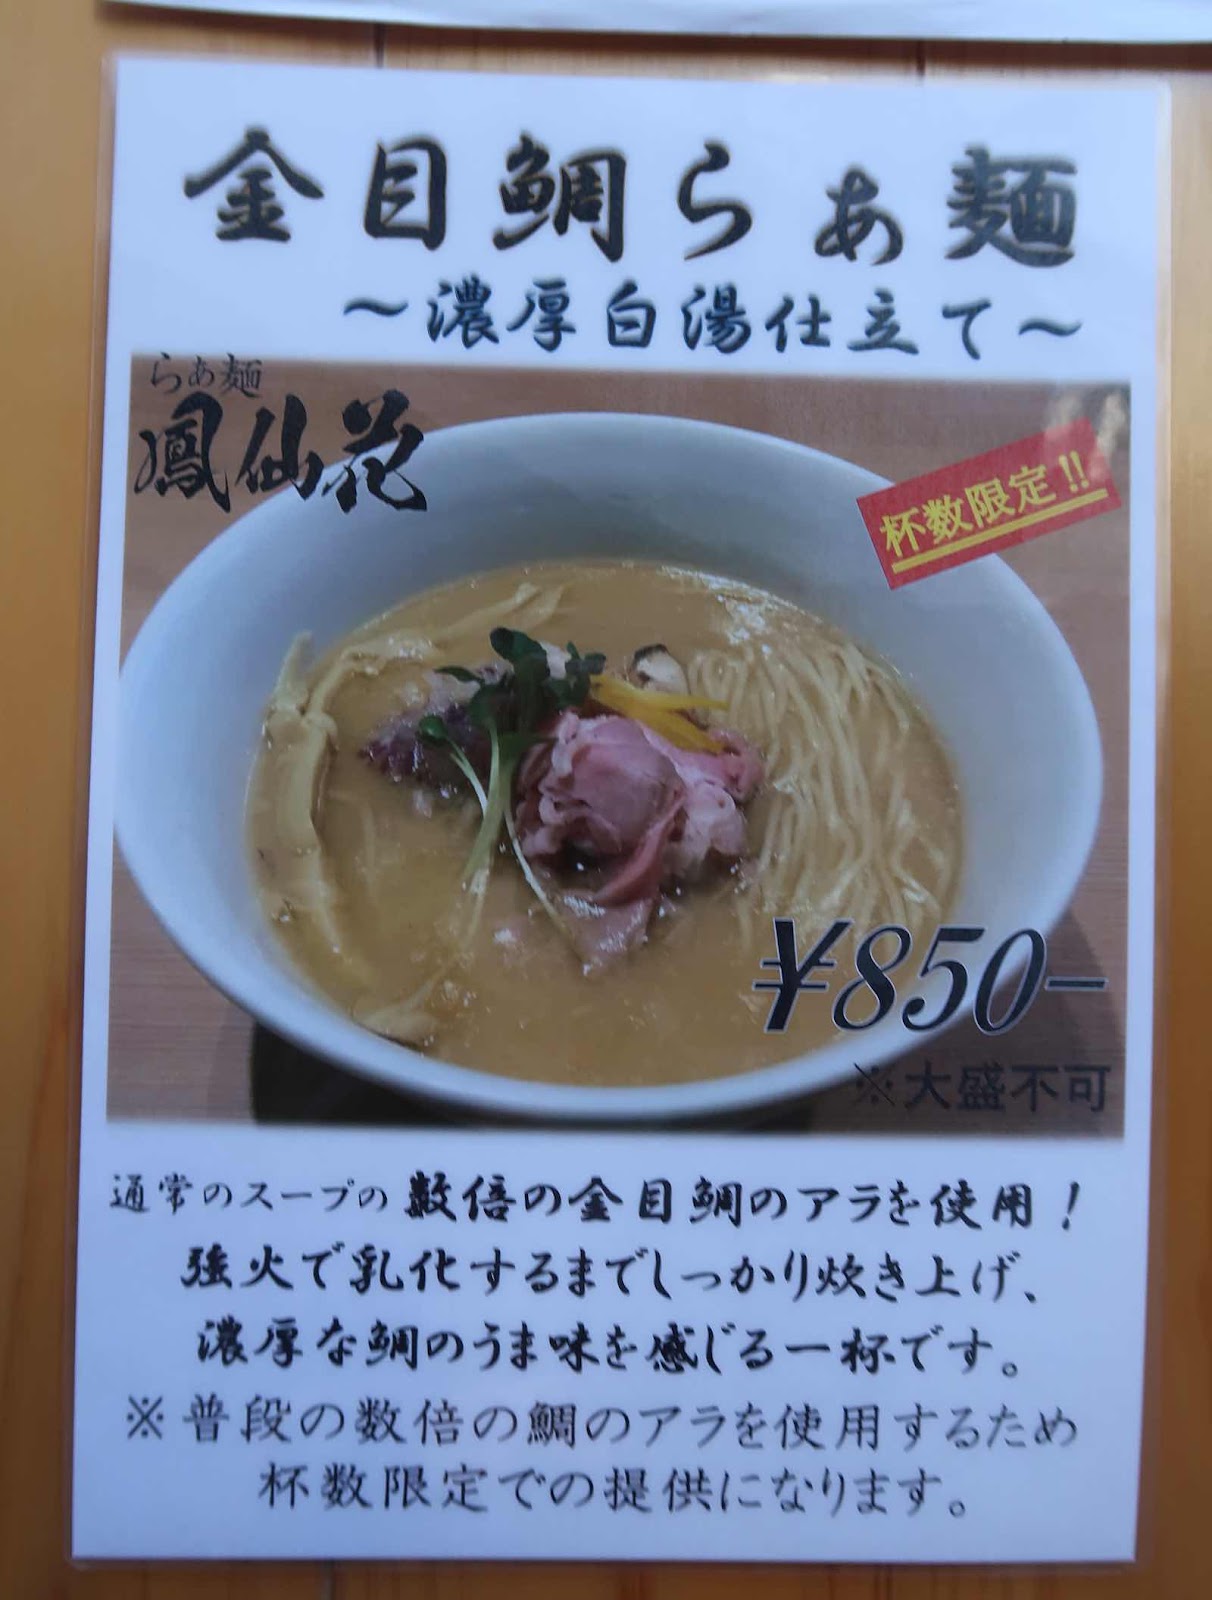 金目鯛らぁ麺
～濃厚白湯仕立て～
らぁ麺
鳳仙花
杯数限定!!
¥850-
※大盛不可
通常のスープの数倍の金目鯛のアラを使用！
強火で乳化するまでしっかり炊き上げ、
濃厚な鯛のうま味を感じる一杯です。
※普段の数倍の鯛のアラを使用するため
杯数限定での提供になります。